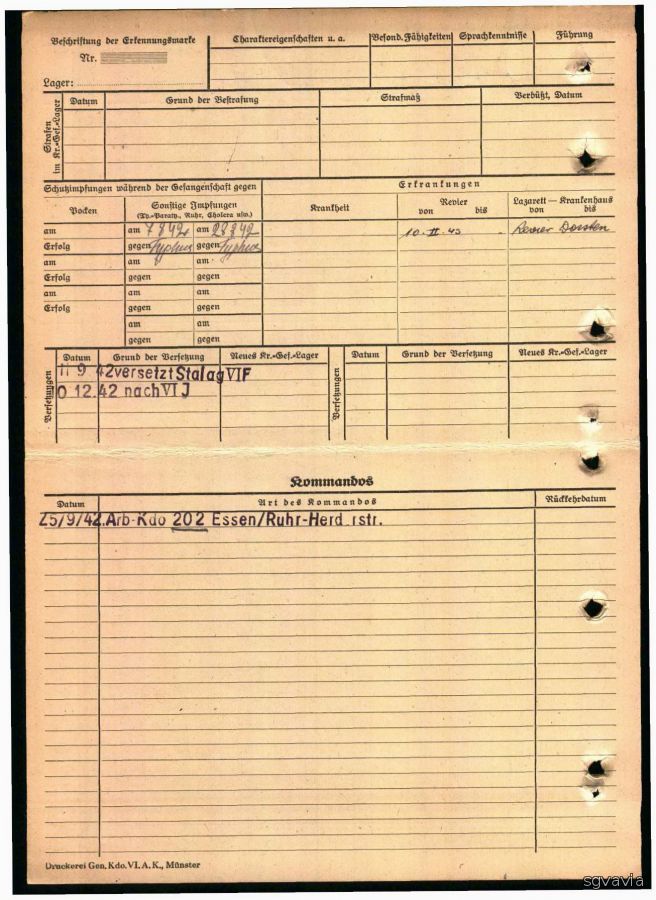 Beschriftung der Erkennungsmarke
Nr.
Lager:
Charaktereigenschaften u. a.
Besond. Fähigkeiten
Sprachkenntnisse
Führung
Strafen im Kr.-Gef.-Lager
Datum
Grund der Bestrafung
Strafmaß
Verbüßt, Datum
Schutzimpfungen während der Gefangenschaft gegen
Erkrankungen
Pocken
Sonstige Impfungen
(Ty.-Paraty., Ruhr, Cholera usw.)
Krankheit
Revier
von bis
Lazarett — Krankenhaus
von bis
am am 7 8 42 am 28 8 42 10. II. 43 - Revier Dorsten
Erfolg gegen Typhus gegen Typhus
am am am
Erfolg gegen gegen
am am am
Erfolg gegen gegen
am am
gegen gegen
Versetzungen
Datum Grund der Versetzung Neues Kr.-Gef.-Lager
Versetzungen
Datum Grund der Versetzung Neues Kr.-Gef.-Lager
11 9 42 versetzt Stalag VI F
0 12.42 nach VI J
Kommandos
Datum Art des Kommandos Rückkehrdatum
25/9/42. Arb-Kdo 202 Essen/Ruhr-Herd rstr.
Druckerei Gen. Kdo. VI. A. K., Münster
sgvavia